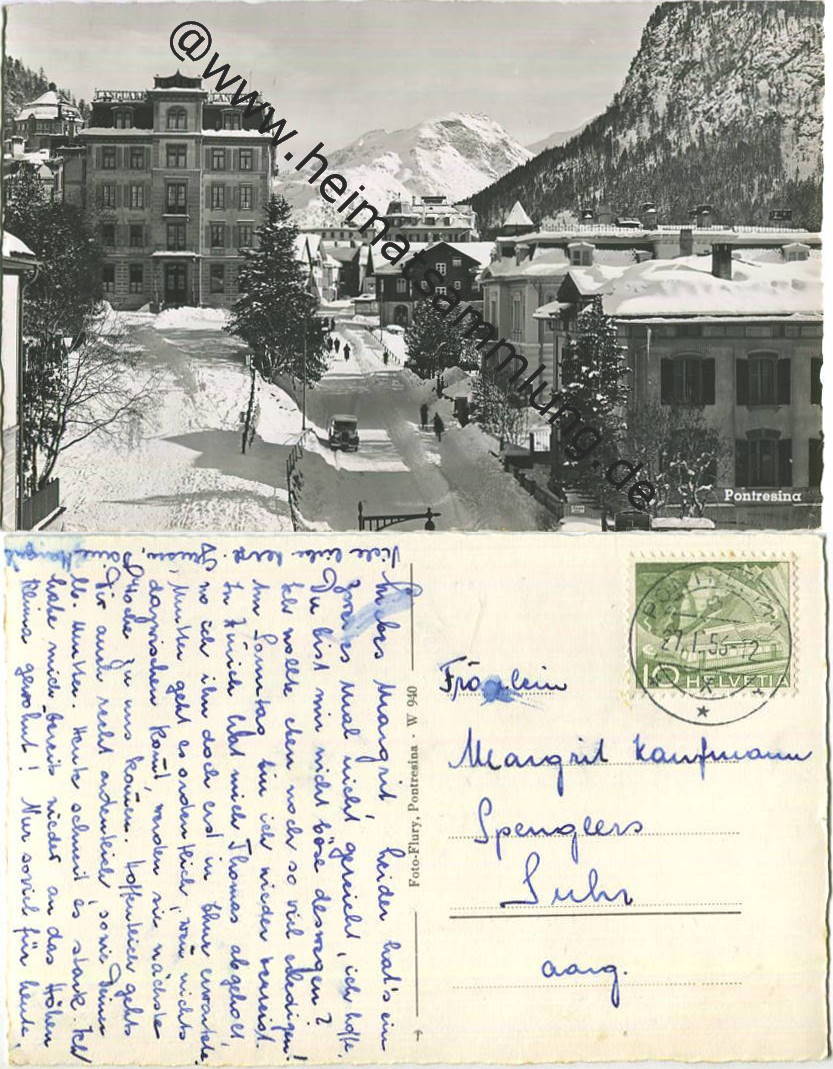 @www.heimatsammlung.de
LANGUARD
Pontresina
Liebes Margrit, leider hat's ein
zweites Mal nicht gereicht, ich hoffe,
Du bist mir nicht böse deswegen?
Ich wollte eben noch so viel erledigen!
Am Sonntag bin ich wieder verreist.
In Zürich hat mich Thomas abgeholt,
wo ich ihn doch erst in Chur erwartete.
Mutter geht es ordentlich, wenn nichts
dazwischen kommt, werden sie nächste
Woche zu uns kommen. Hoffentlich gehts
Dir auch recht ordentlich sowie Deiner
lb. Mutter. Heute schneit es stark. Ich
habe mich bereits wieder an das Höhen
klima gewöhnt! Nur soviel für heute,
Viele liebe herzl. Grüsse, Deine
Foto-Flury, Pontresina · W 940
27.I.56-12
10 HELVETIA
Fräulein
Margrit Kaufmann
Spenglers
Suhr
Aarg.